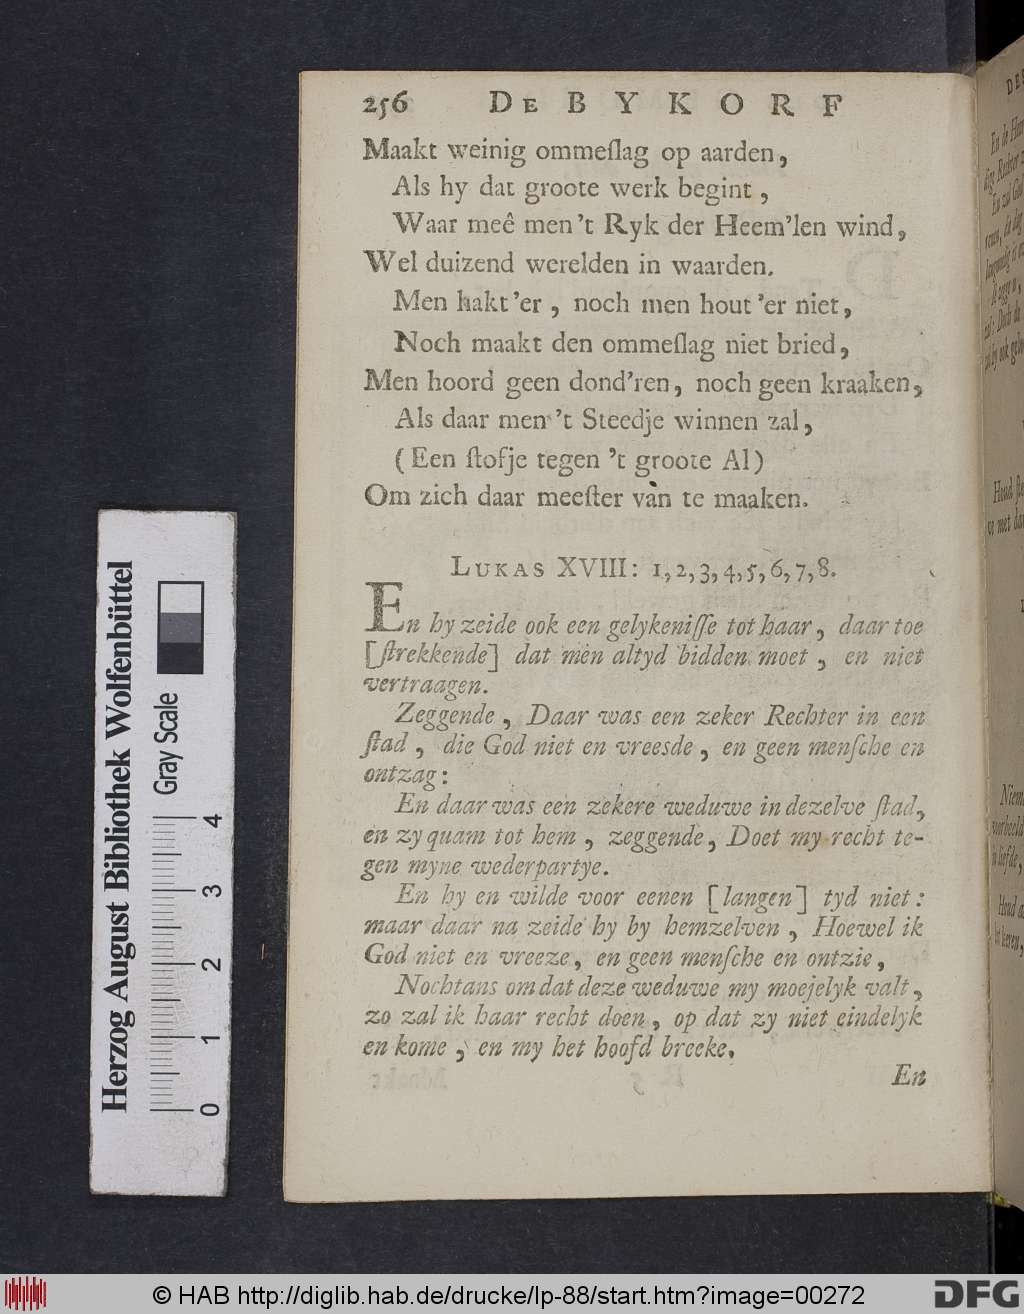 256 DE BYKORF
Maakt weinig ommeſlag op aarden,
Als hy dat groote werk begint,
Waar meê men 't Ryk der Heem'len wind,
Wel duizend werelden in waarden.
Men hakt 'er, noch men hout 'er niet,
Noch maakt den ommeſlag niet bried,
Men hoord geen dond'ren, noch geen kraaken,
Als daar men 't Steedje winnen zal,
(Een ſtofje tegen 't groote Al)
Om zich daar meeſter van te maaken.
LUKAS XVIII: 1, 2, 3, 4, 5, 6, 7, 8.
En hy zeide ook een gelykeniſſe tot haar, daar toe
[ſtrekkende] dat men altyd bidden moet, en niet
vertraagen.
Zeggende, Daar was een zeker Rechter in een
ſtad, die God niet en vreesde, en geen menſche en
ontzag:
En daar was een zekere weduwe in dezelve ſtad,
en zy quam tot hem, zeggende, Doet my recht te-
gen myne wederpartye.
En hy en wilde voor eenen [langen] tyd niet:
maar daar na zeide hy by hemzelven, Hoewel ik
God niet en vreeze, en geen menſche en ontzie,
Nochtans om dat deze weduwe my moejelyk valt,
zo zal ik haar recht doen, op dat zy niet eindelyk
en kome, en my het hoofd breeke.
En
Herzog August Bibliothek Wolfenbüttel
Gray Scale
0 1 2 3 4
© HAB http://diglib.hab.de/drucke/lp-88/start.htm?image=00272
DFG